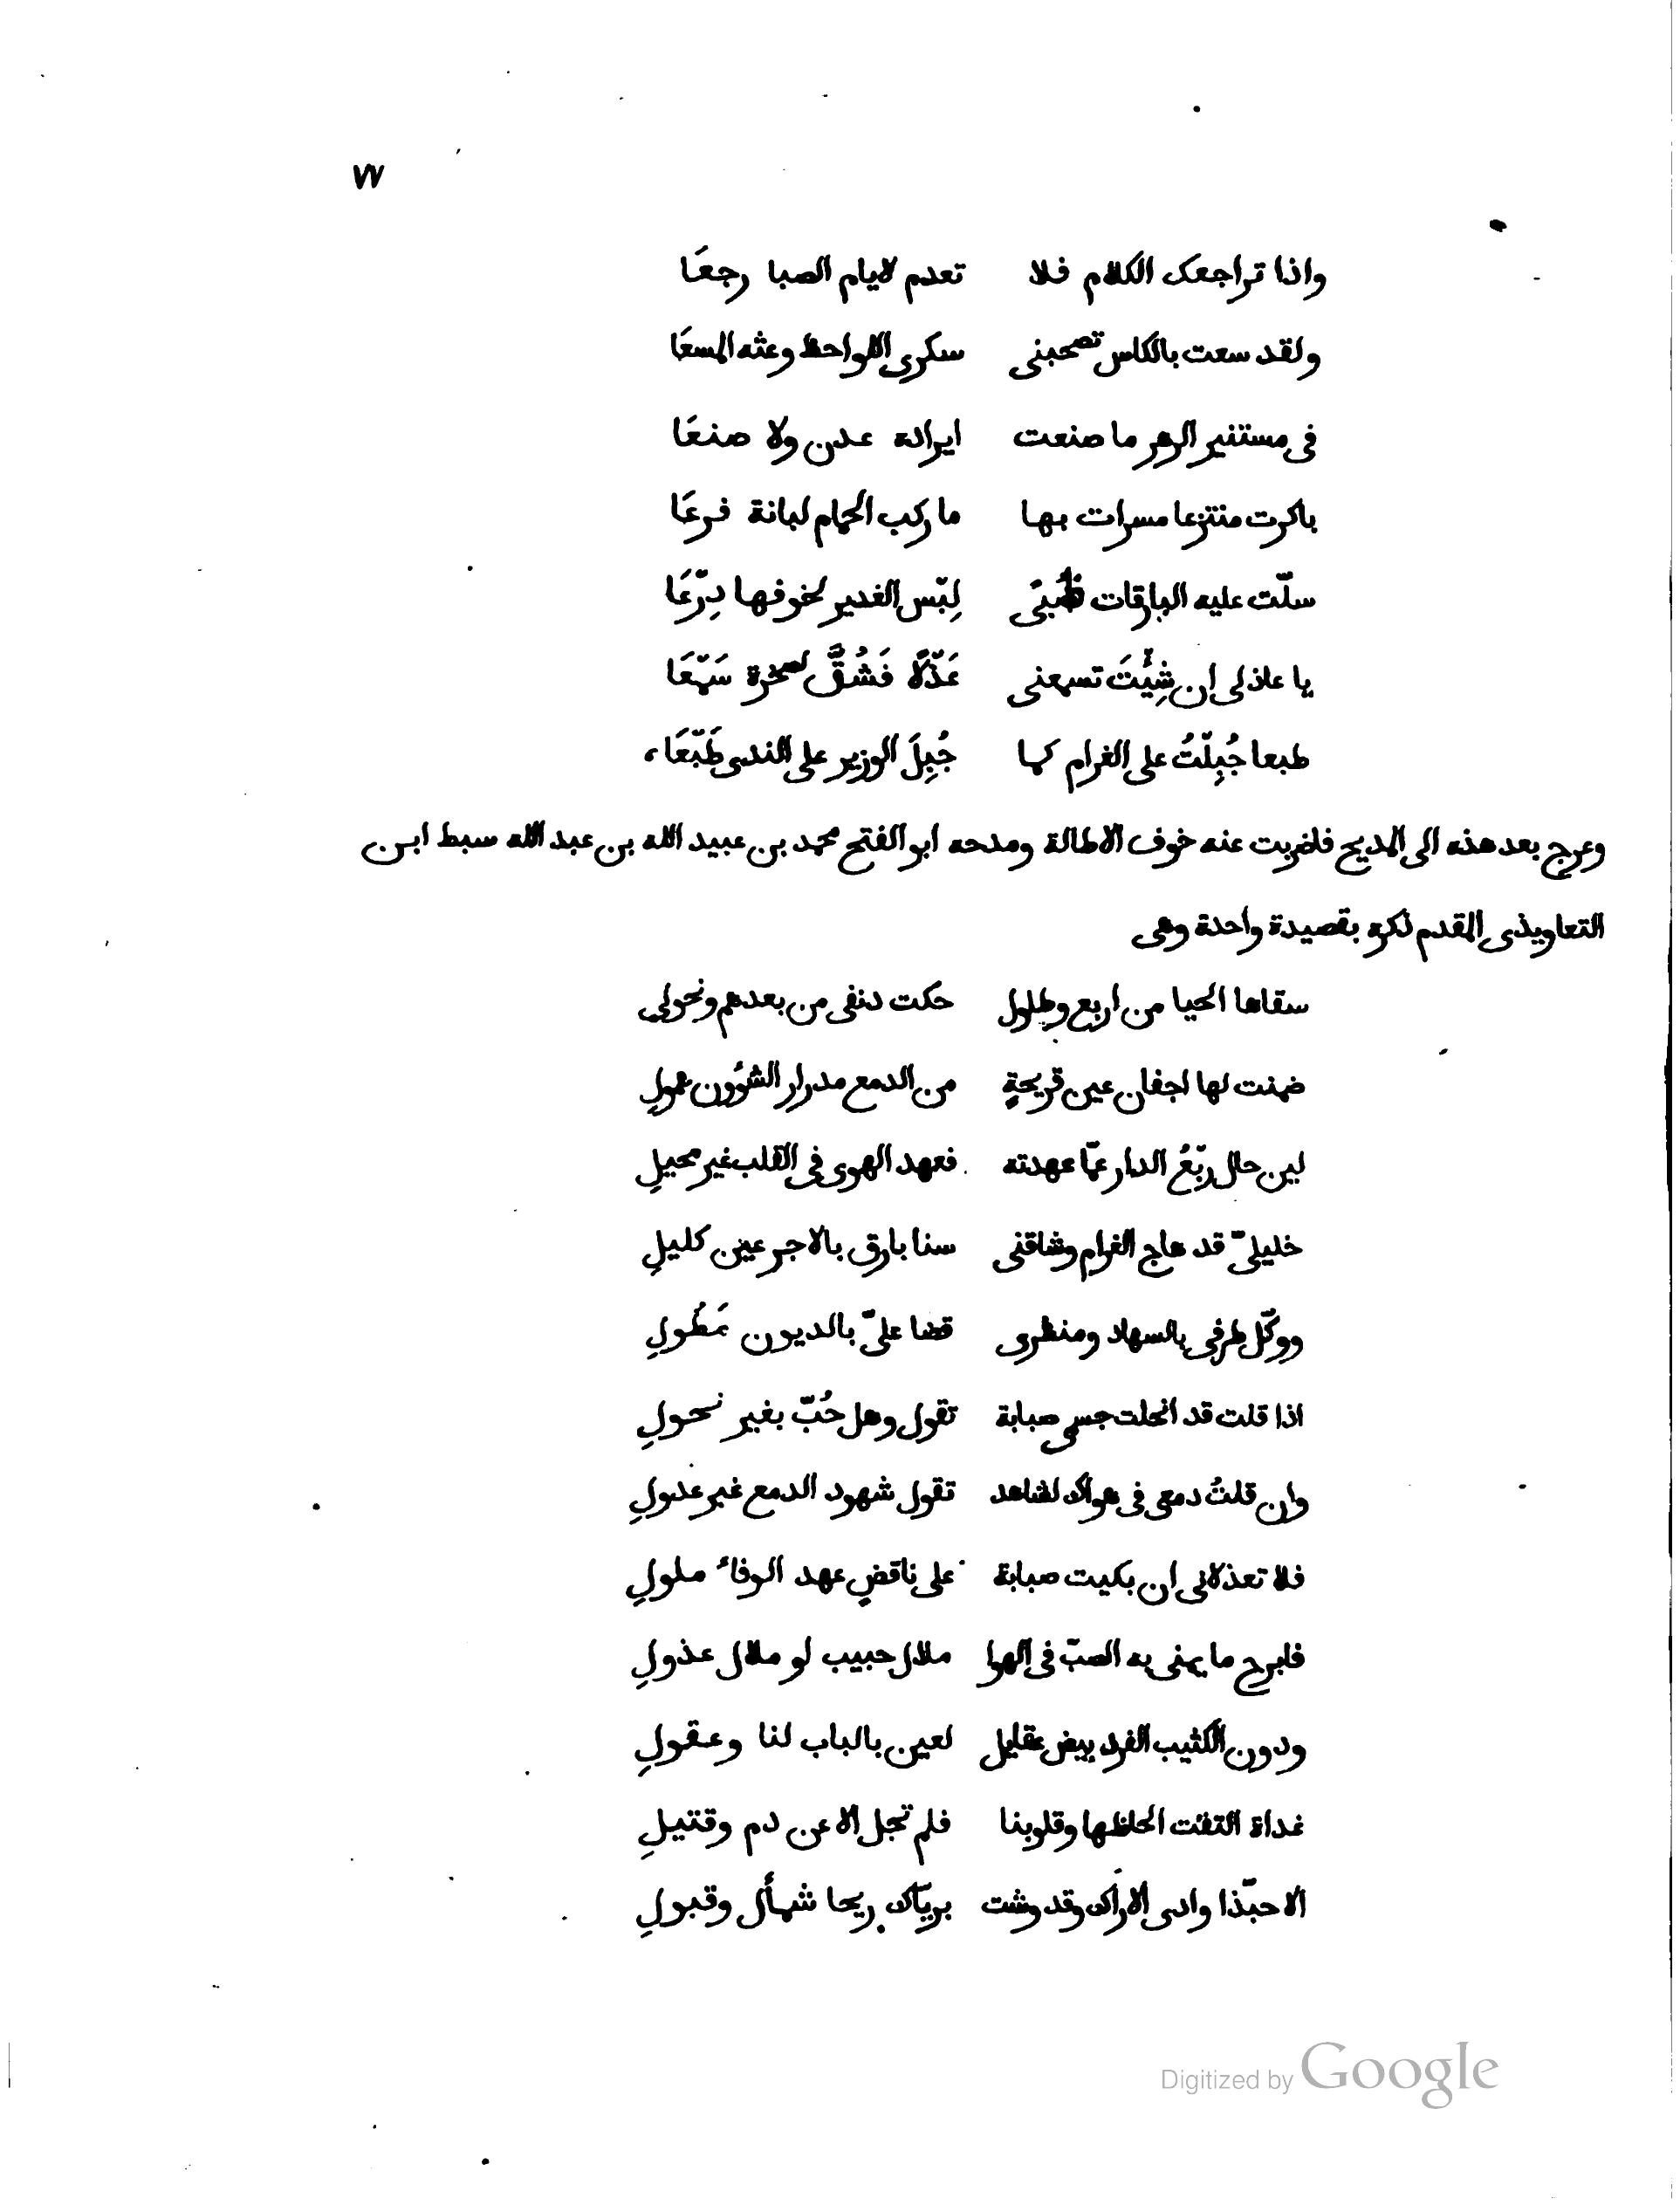 ٧٧
واذا تراجعك الكلام فلا تعدم لايام الصبا رجعَا
ولقد سعت بالكاس تصحبنى سكرى اللواحظ وعثه المسعَا
فى مستنير الزهر ما صنعت ايراده عدن ولا صنعَا
باكرت منتزعا مسرات بها ما ركب الحمام لبانة فرعَا
سلّت عليه البارقات ظُبىً لِبْس الغدير لخوفها دِرْعَا
يا عاذلى إن شِئْتَ تسمعنى عَذْلًا فَشُقَّ لصخرة سَمْعَا
طبعا جُبِلْتُ على الغرام كما جُبِلَ الوزير على الندى طَبْعَا،
وعرج بعد هذه الى المديح فاضربت عنه خوف الاطالة ومدحه ابو الفتح محمد بن عبيد الله بن عبد الله سبط ابن
التعاويذى المقدم ذكره بقصيدة واحدة وهى
سقاها الحيا من اربع وطلول حكت دنفى من بعدهم ونحولي
ضمنت لها اجفان عين قريحةٍ من الدمع مدرار الشؤون همولِ
لين حال ربْعُ الدار عمّا عهدته فعهد الهوى فى القلب غير محيلِ
خليلىّ قد هاج الغرام وشاقنى سنا بارق بالاجرعين كليلِ
ووكّل طرفى بالسهاد ومنظرى قضا علىّ بالديون مَطُولِ
اذا قلت قد انحلت جسمى صبابة تقول وهل حُبّ بغير نحولِ
وان قلتُ دمعى فى هواك لشاهد تقول شهود الدمع غير عدولِ
فلا تعذلانى ان بكيت صبابة على ناقضٍ عهد الوفاء ملولِ
فابرح ما يمنى به الصبّ فى الهوا ملال حبيب لو ملال عذولِ
ودون الكثيب الفرد بيض عقايل لعين بالباب لنا وعقولِ
غداة التقت الحاظها وقلوبنا فلم تجل الا عن دم وقتيلِ
الا حبّذا وادى الاراك وقد وشت بريّاك ريحا شمأل وقبولِ
Digitized by Google